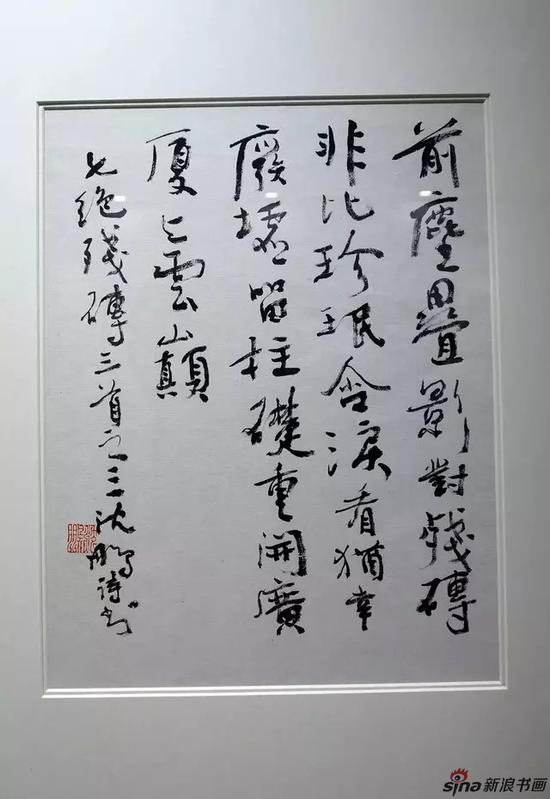 前塵疊影對殘磚
非比珍珉含淚看猶幸
廢墟留柱礎重開廣
厦上雲巔
七絕殘磚三首之三沈鵬詩書
sina新浪书画